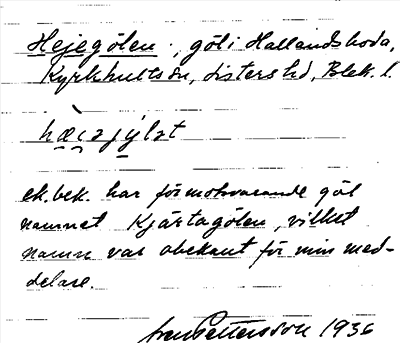 Hejegölen, göl i Hallandsboda,
Kyrkhults sn, Listers hd, Blek. l.
ek.bek. har förmotsvarande göl
namnet Kjärtagölen, vilket
namn var obekant för min med-
delare.
Pettersson 1936